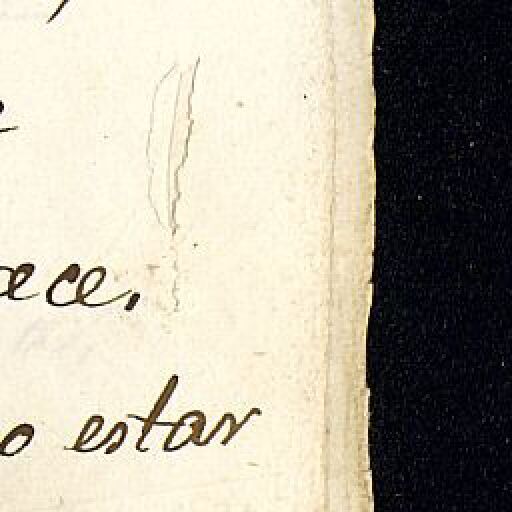 ece.
o estar